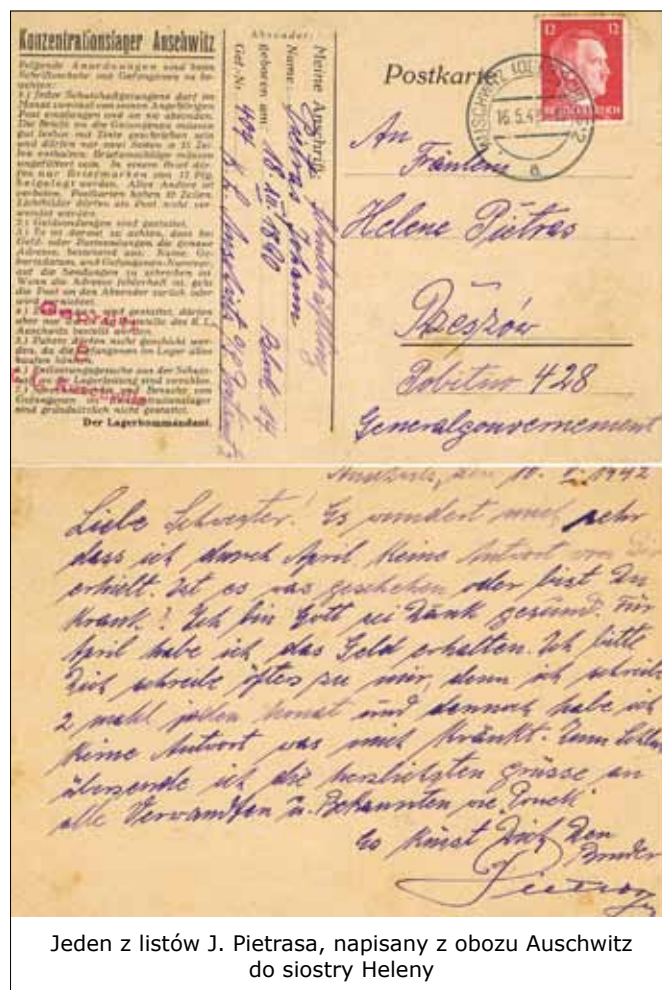 Konzentrationslager Auschwitz
Folgende Anordnungen sind beim
Schriftverkehr mit Gefangenen zu be-
achten:
1.) Jeder Schutzhaftgefangene darf im
Monat zweimal von seinen Angehörigen
Post empfangen und an sie absenden.
Die Briefe an die Gefangenen müssen
gut lesbar mit Tinte geschrieben sein
und dürfen nur zwei Seiten a 15 Zei-
len enthalten. Briefumschläge müssen
ungefüttert sein. In einem Brief dür-
fen nur Briefmarken von 12 Pfg.
beigelegt werden. Alles Andere ist
verboten. Postkarten haben 10 Zeilen.
Lichtbilder dürfen als Post nicht ver-
wendet werden.
2.) Geldsendungen sind gestattet.
3.) Es ist darauf zu achten, dass bei
Geld- oder Postsendungen die genaue
Adresse, bestehend aus: Name, Ge-
burtsdatum, und Gefangenen-Nummer,
auf die Sendungen zu schreiben ist.
Wenn die Adresse fehlerhaft ist, geht
die Post an den Absender zurück oder
wird vernichtet.
4.) sind gestattet, dürfen
aber nur
Auschwitz bestellt werden.
5.) Pakete dürfen nicht geschickt wer-
den, da die Gefangenen im Lager alles
kaufen können.
6.) Entlassungsgesuche aus der Schutz-
haft an die Lagerleitung sind zwecklos.
7.) und Besuche von
Gefangenen im Konzentrationslager
sind grundsätzlich nicht gestattet.
Der Lagerkommandant.
Meine Anschrift:
Absender:
Name: Pietras Johann
geboren am 18 XII 1900 Block 17
Gef.-Nr.
Postkarte
12 12
16.5.42
An
Fräulein
Helene Pietras
Rzeszów
Pobitno 428
Generalgouvernement
Auschwitz, den 10. 1942
Liebe Schwester! Es wundert mich sehr
dass ich durch April keine Antwort von Dir
erhielt. Ist es was geschehen oder bist Du
krank? Ich bin Gott sei Dank gesund. Für
April habe ich das Geld erhalten. Ich bitte
Dich schreibe öfters zu mir, denn ich schreibe
2 mahl jeden Monat und dennoch habe ich
keine Antwort was mich kränkt. Zum
übersende ich die herzlichsten Grüsse an
alle Verwandten u. Bekannten
Es küsst Dich Den
Bruder
Pietras
Jeden z listów J. Pietrasa, napisany z obozu Auschwitz
do siostry Heleny